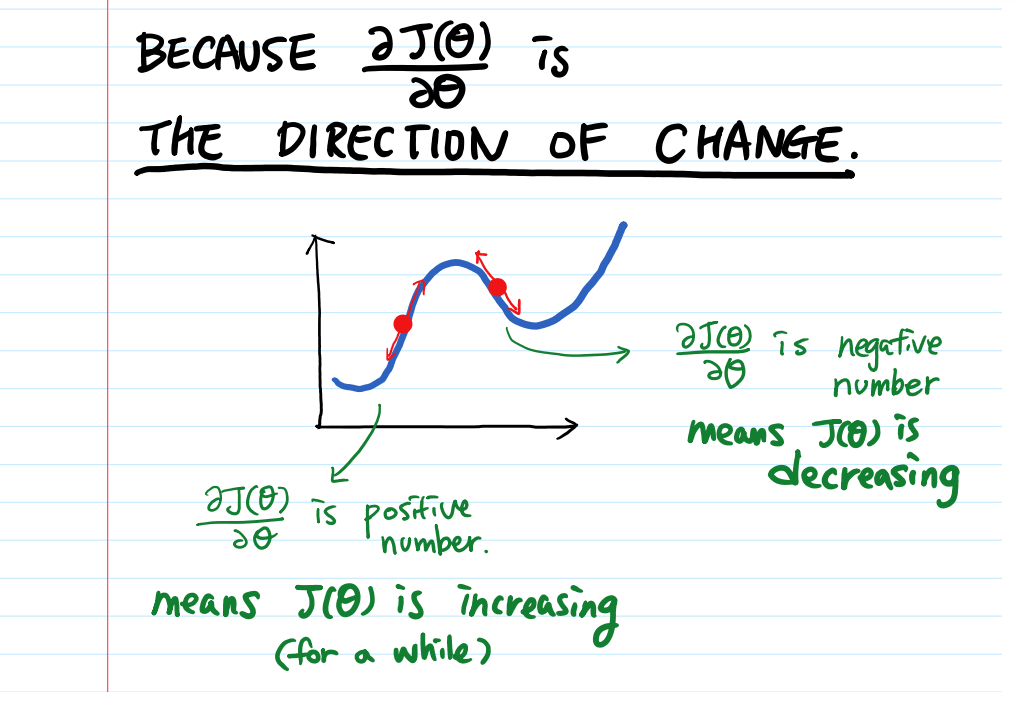 BECAUSE ∂J(θ)/∂θ is
THE DIRECTION OF CHANGE.
∂J(θ)/∂θ is negative
number
means J(θ) is
decreasing
∂J(θ)/∂θ is positive
number.
means J(θ) is increasing
(for a while)